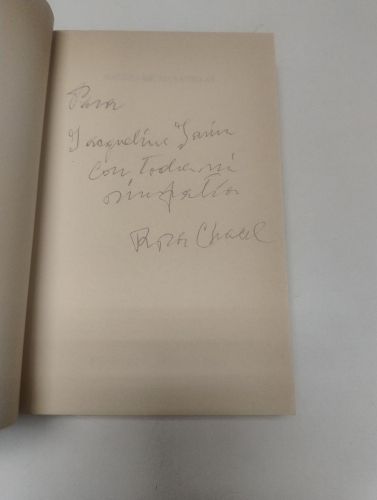 Para
Jacqueline
con toda mi
simpatía
Rosa Chacel